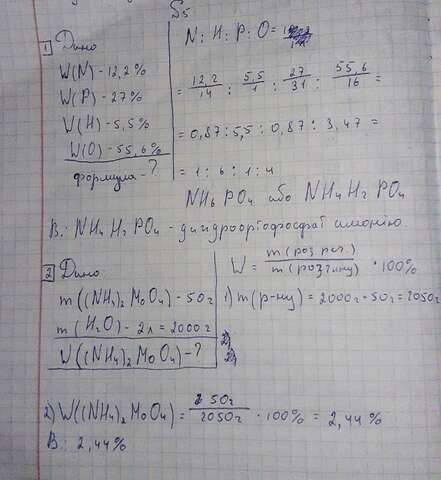 §5
1 Дано
W(N) - 12,2%
W(P) - 27%
W(H) - 5,5%
W(O) - 55,6%
формула - ?
N : H : P : O =
= 12,2/14 : 5,5/1 : 27/31 : 55,6/16 =
= 0,87 : 5,5 : 0,87 : 3,47 =
= 1 : 6 : 1 : 4
NH6 PO4 або NH4 H2 PO4
В.: NH4 H2 PO4 - дигідроортофосфат амонію.
2 Дано
m((NH4)2 MoO4) - 50г
m(H2O) - 2л = 2000г
W((NH4)2 MoO4) - ?
W = m(роз.реч.)/m(розчину) · 100%
1) m(р-ну) = 2000г + 50г = 2050г
2) W((NH4)2 MoO4) = 50г/2050г · 100% = 2,44%
В.: 2,44%